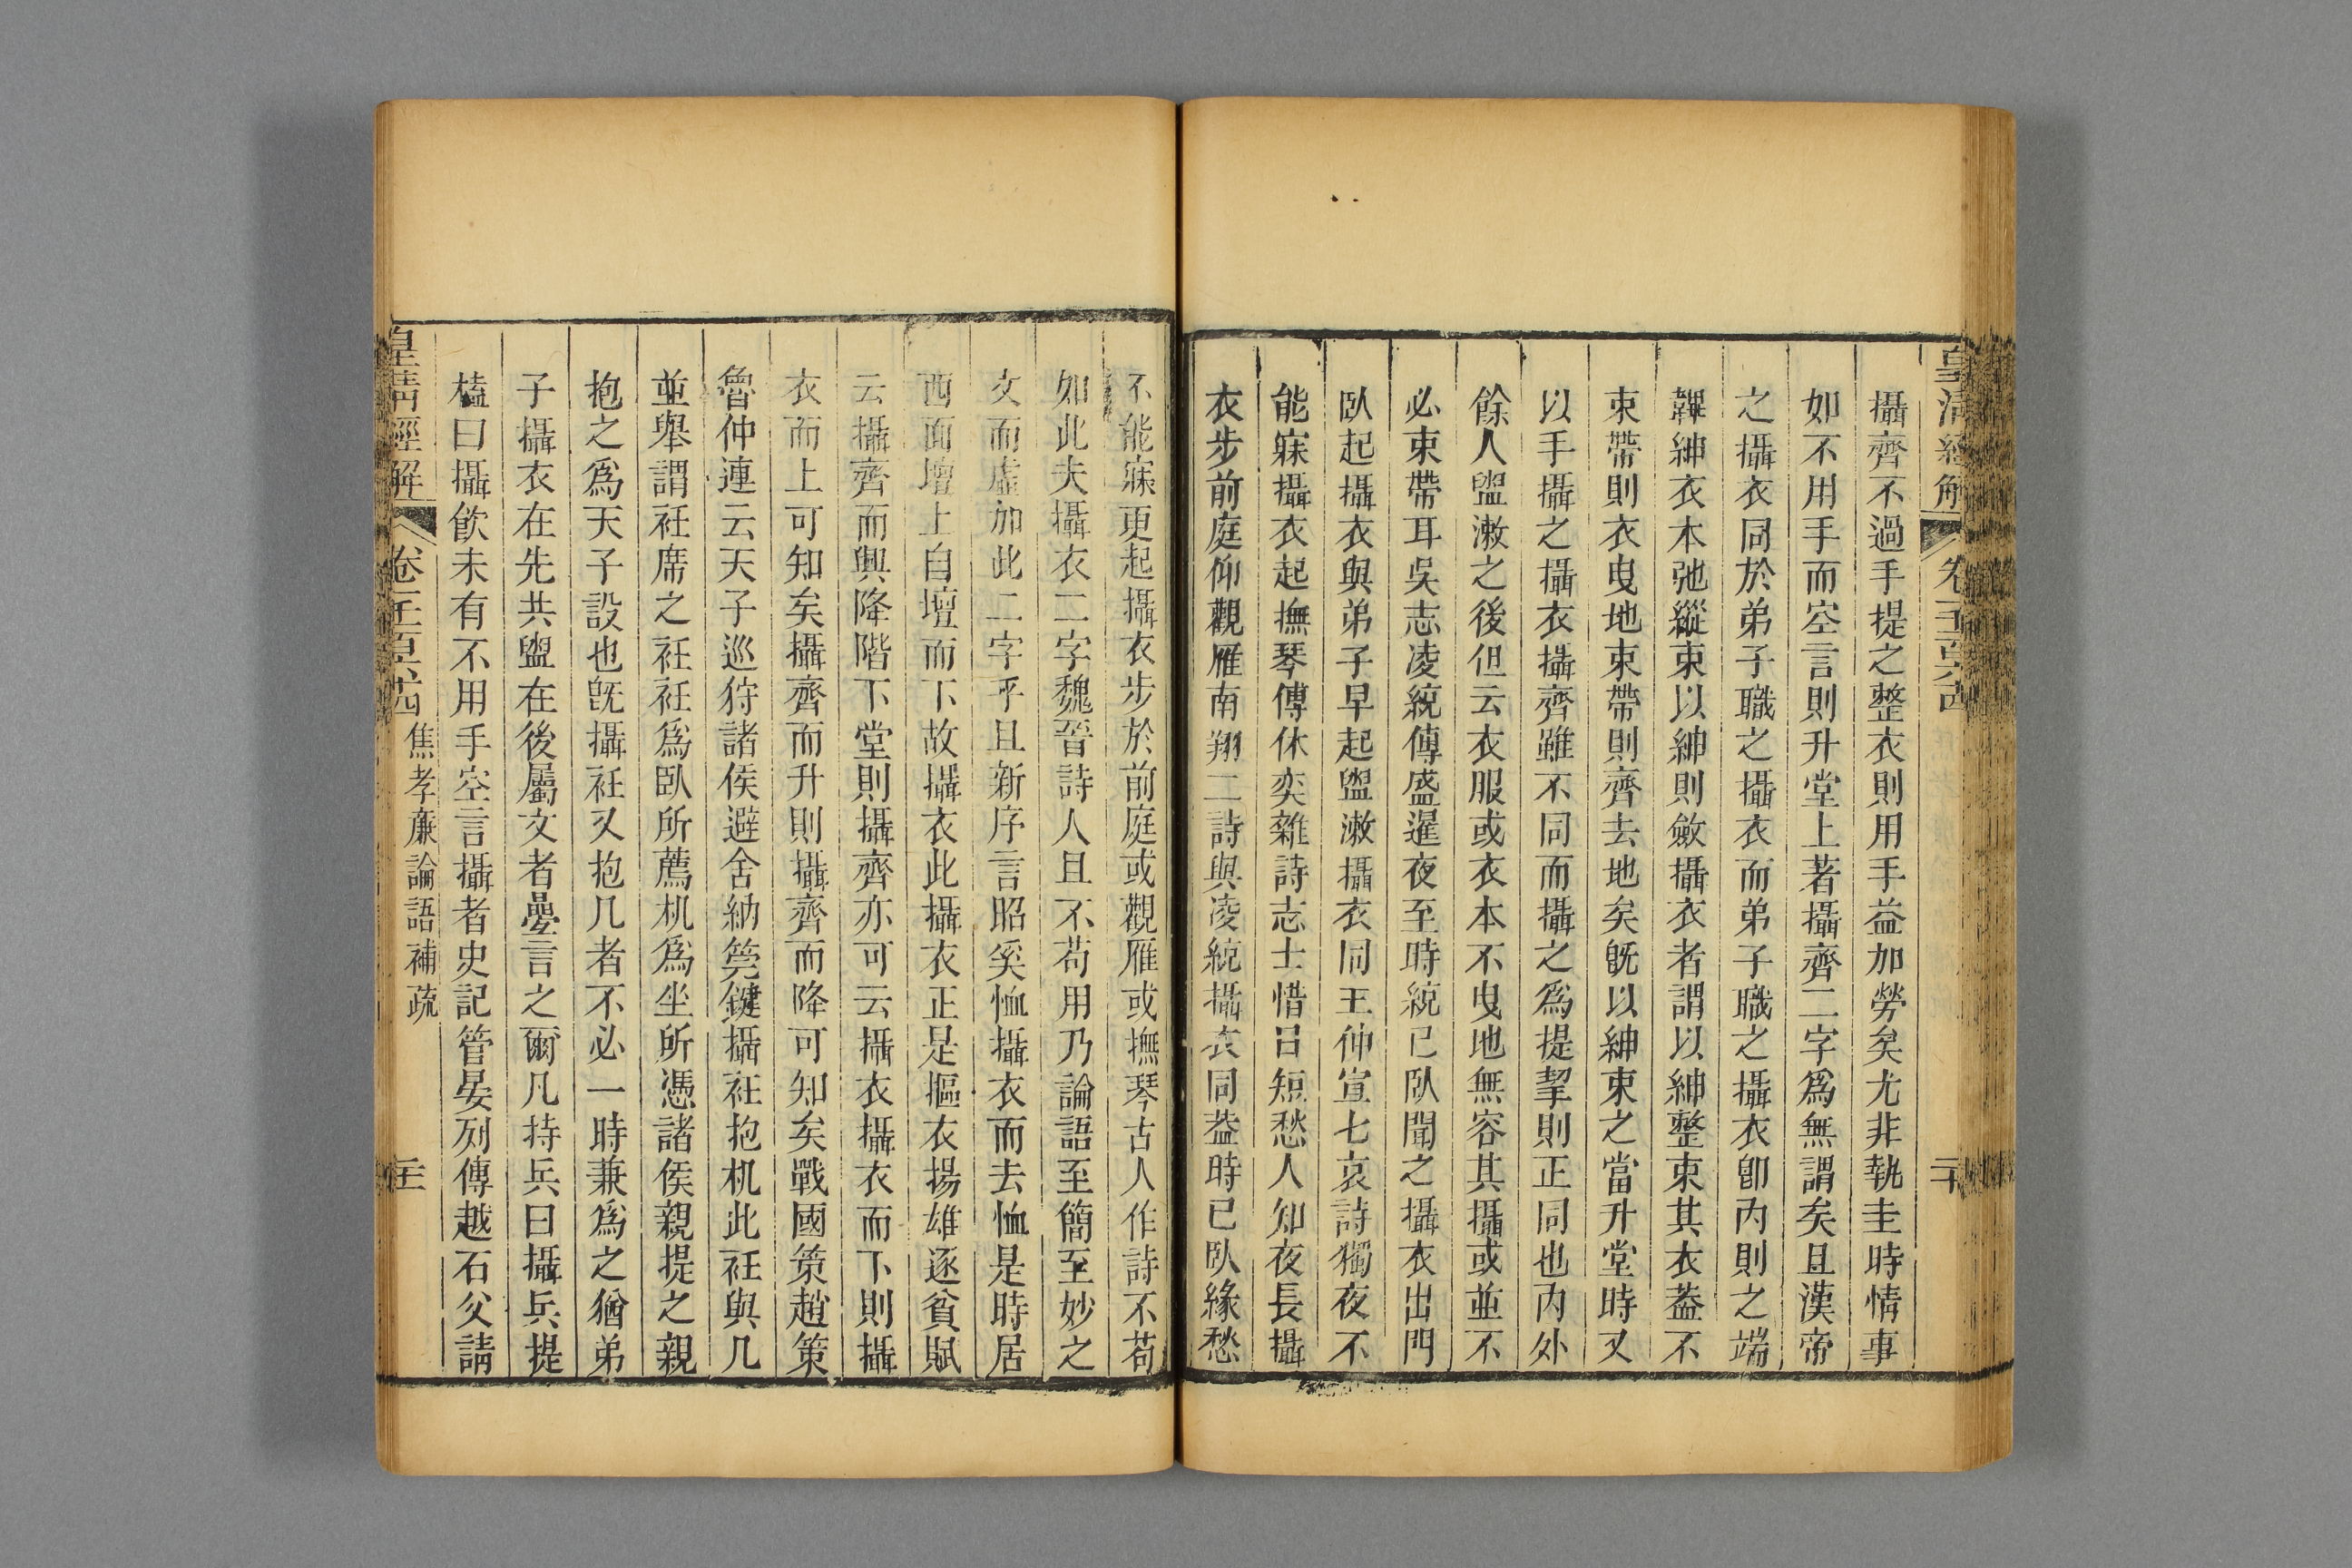 皇清經解 卷一千一百六十四 二十
攝齊不過手提之整衣則用手益加勞矣尤非執圭時情事
如不用手而空言則升堂上著攝齊二字爲無謂矣且漢帝
之攝衣同於弟子職之攝衣而弟子職之攝衣卽內則之端
韠紳衣本弛縱束以紳則斂攝衣者謂以紳整束其衣葢不
束帶則衣曳地束帶則齊去地矣旣以紳束之當升堂時又
以手攝之攝衣攝齊雖不同而攝之爲提挈則正同也內外
餘人盥漱之後但云衣服或衣本不曳地無容其攝或並不
必束帶耳吳志凌統傳盛暹夜至時統已臥聞之攝衣出門
臥起攝衣與弟子早起盥漱攝衣同王仲宣七哀詩獨夜不
能寐攝衣起撫琴傅休奕雜詩志士惜日短愁人知夜長攝
衣步前庭仰觀雁南翔二詩與凌統攝衣同葢時已臥緣愁
不能寐更起攝衣步於前庭或觀雁或撫琴古人作詩不苟
如此夫攝衣二字魏晉詩人且不苟用乃論語至簡至妙之
文而虛加此二字乎且新序言昭奚恤攝衣而去恤是時居
西面壇上自壇而下故攝衣此攝衣正是摳衣揚雄逐貧賦
云攝齊而興降階下堂則攝齊亦可云攝衣攝衣而下則攝
衣而上可知矣攝齊而升則攝齊而降可知矣戰國策趙策
魯仲連云天子巡狩諸侯避舍納筦鍵攝衽抱机此衽與几
並舉謂衽席之衽衽爲臥所薦机爲坐所憑諸侯親提之親
抱之爲天子設也旣攝衽又抱几者不必一時兼爲之猶弟
子攝衣在先共盥在後屬文者曡言之爾凡持兵曰攝兵提
榼曰攝飮未有不用手空言攝者史記管晏列傳越石父請
皇清經解 卷一千一百六十四 焦孝廉論語補疏 二十一